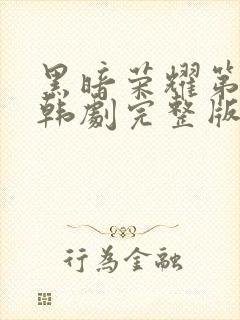 黑暗荣耀第
韩劇完整版
行為金融